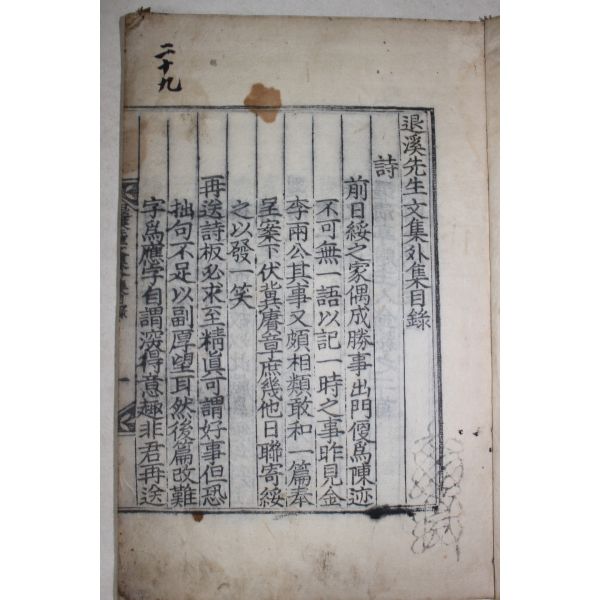 退溪先生文集外集目錄
詩
前日綏之家偶成勝事出門便爲陳迹
不可無一語以記一時之事昨見金
李兩公其事又頗相類敢和一篇奉
呈案下伏冀賡音庶幾他日聯寄綏
之以發一笑
再送詩板必求至精眞可謂好事但恐
拙句不足以副厚望耳然後篇改難
字爲應字自謂深得意趣非君再送
二十九